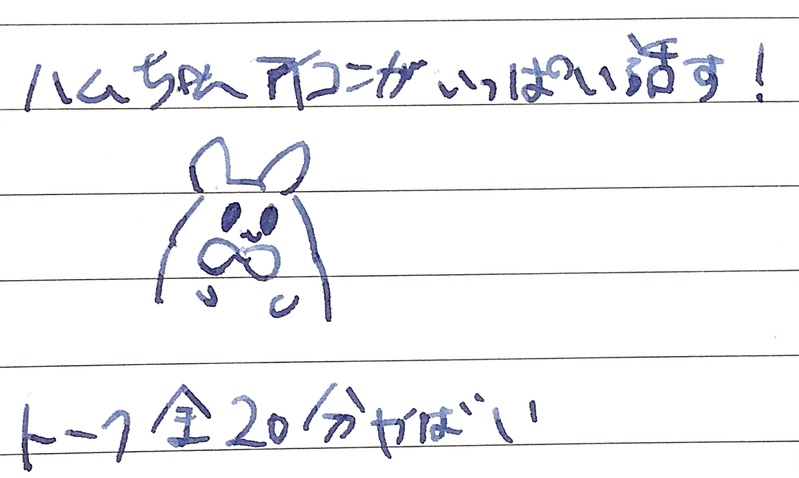 ハムちゃんアイコンがいっぱい話す!
トーク全20分やばい